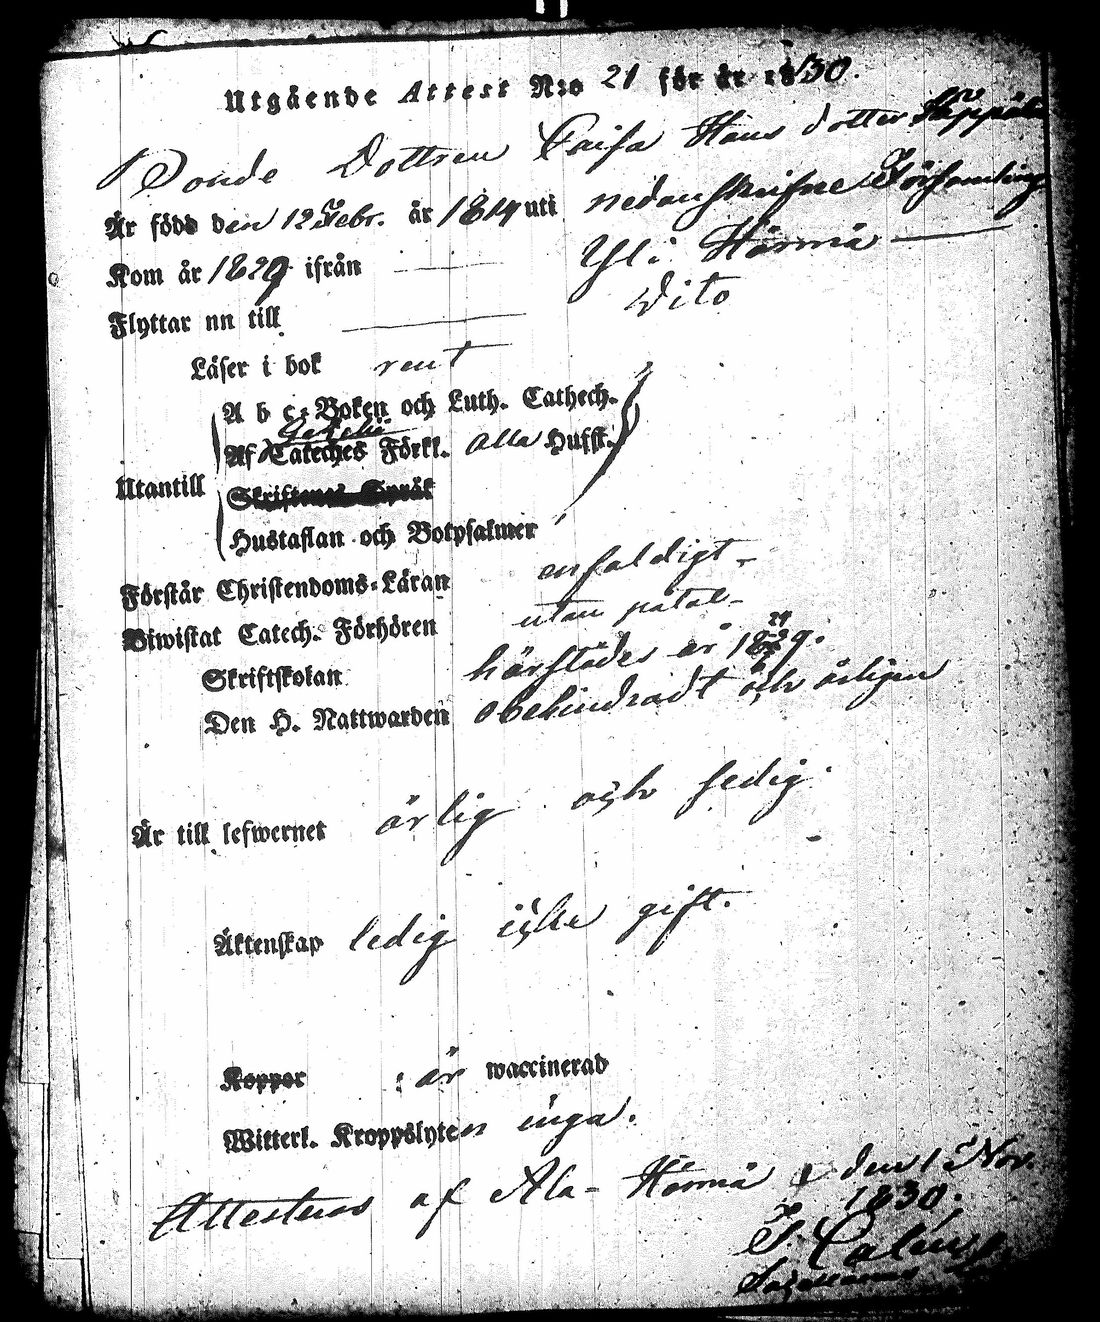 Utgående Attest N:o 21 för år 1830.
Bonde Dottren Caisa Hans dotter
Är född den 12 Febr. år 1814 uti nedanskrifne Församling
Kom år 1829 ifrån — Yli Härmä —
Flyttar nu till — Dito
Läser i bok rent
A b c-Boken och Luth. Cathech.
Af Cateches Förkl. alla Hufst.
Utantill
Skriftenes Språk
Hustaflan och Botpsalmer
Förstår Christendoms-Läran enfaldigt
Biwistat Catech. Förhören utan påtal
Skriftskolan härstädes år 1829.
Den H. Nattwarden obehindradt och årligen
Är till lefwernet ärlig och sedig.
Äktenskap ledig icke gift.
Koppor : är waccinerad
Witterl. Kroppslyten inga.
Attesteras af Ala-Härmä den 1 Nov.
1830.